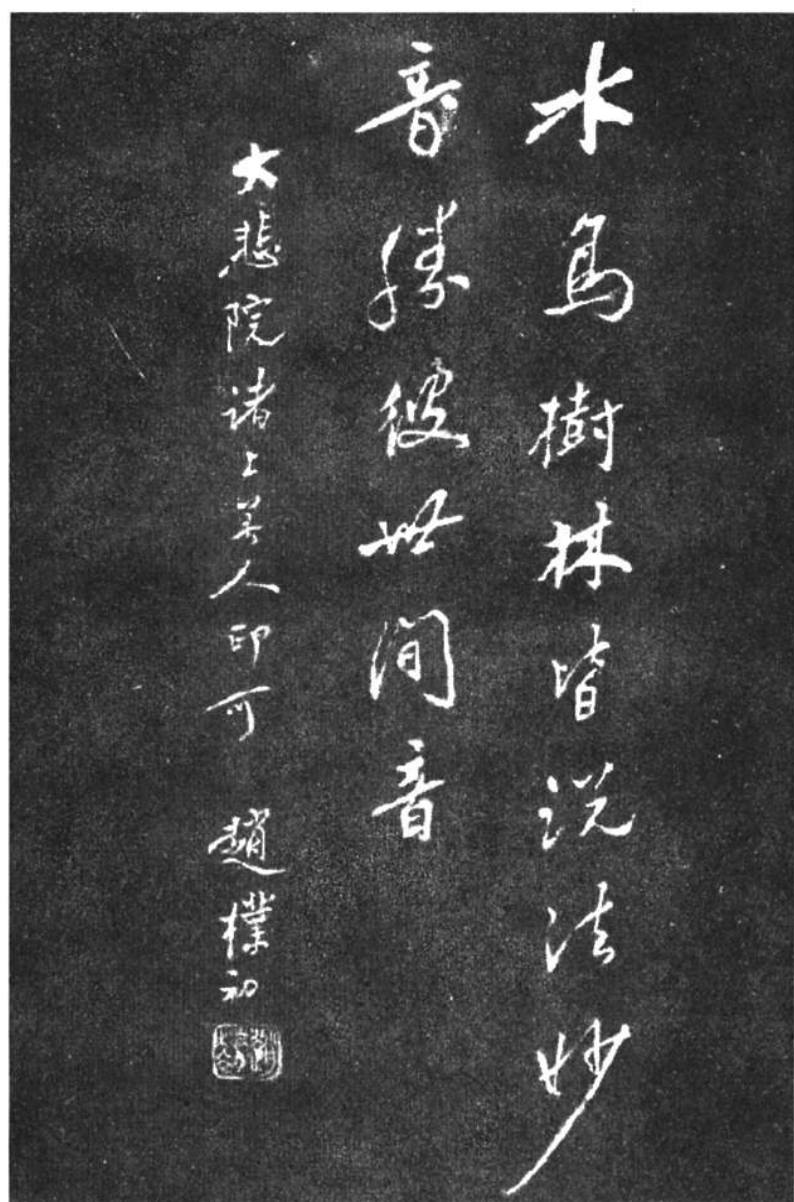 水鳥樹林皆說法妙
音勝彼世間音
大悲院諸上善人印可 趙樸初